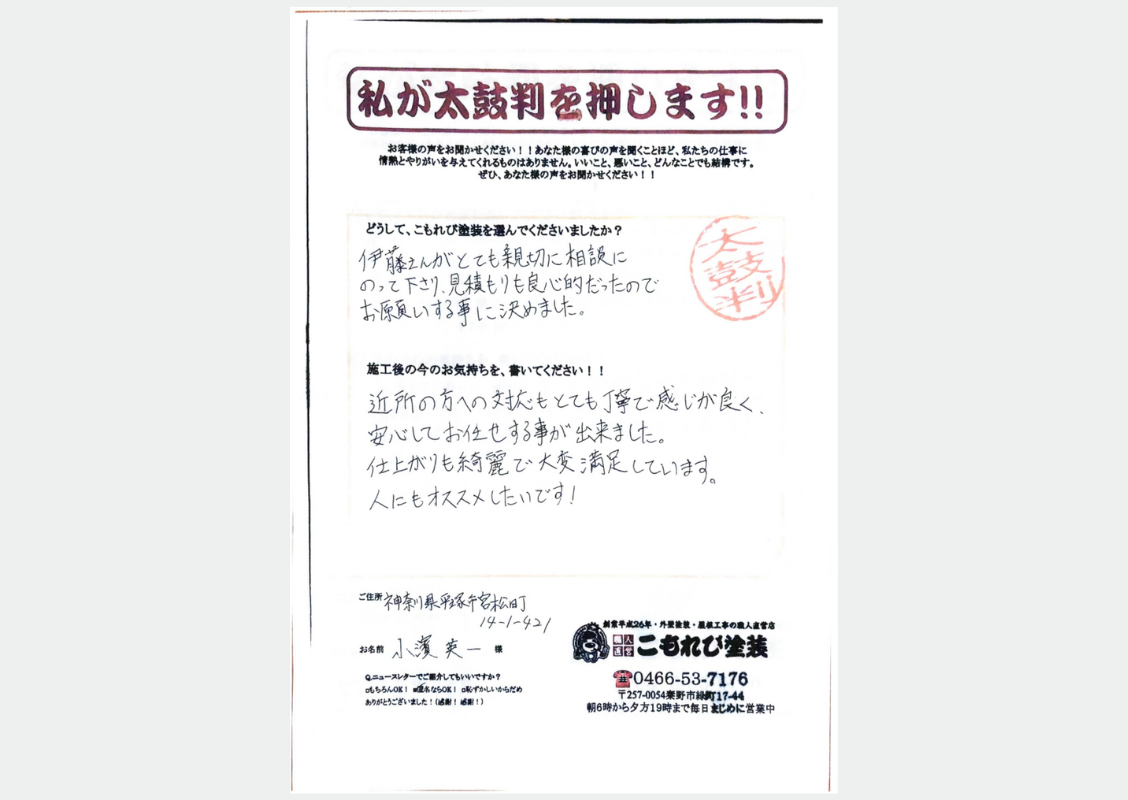 私が太鼓判を押します!!
お客様の声をお聞かせください！！あなた様の喜びの声を聞くことほど、私たちの仕事に
情熱とやりがいを与えてくれるものはありません。いいこと、悪いこと、どんなことでも結構です。
ぜひ、あなた様の声をお聞かせください！！
どうして、こもれび塗装を選んでくださいましたか？
太
鼓
判
伊藤さんがとても親切に相談に
のって下さり、見積もりも良心的だったので
お願いする事に決めました。
施工後の今のお気持ちを、書いてください！！
近所の方への対応もとても丁寧で感じが良く、
安心してお任せする事が出来ました。
仕上がりも綺麗で大変満足しています。
人にもオススメしたいです！
ご住所 神奈川県平塚市宮松町
14-1-421
お名前 小濱 英一 様
Q.ニュースレターでご紹介してもいいですか？
□もちろんOK！ ■匿名ならOK！ □恥ずかしいからだめ
ありがとうございました！(感謝！感謝！)
創業平成26年・外壁塗装・屋根工事の職人直営店
職人直営 こもれび塗装
☎0466-53-7176
〒257-0054秦野市緑町17-44
朝6時から夕方19時まで毎日まじめに営業中